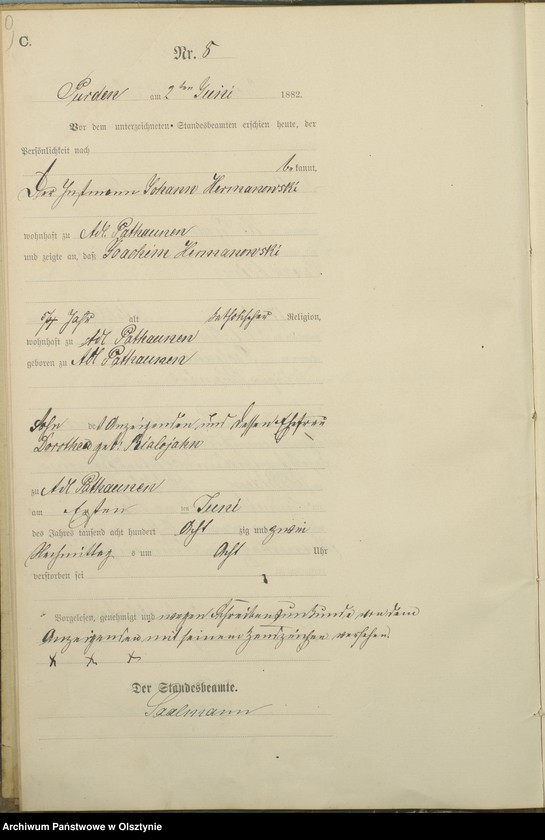 9
C.
Nr. 8
Purden am 2ten Juni 1882.
Vor dem unterzeichneten Standesbeamten erschien heute, der
Persönlichkeit nach
bekannt,
Der Instmann Johann Hermanowski
wohnhaft zu Adl. Pathaunen
und zeigte an, daß Joachim Hermanowski
5/4 Jahr alt katholischer Religion,
wohnhaft zu Adl Pathaunen
geboren zu Adl Pathaunen
Sohn des Anzeigenden und dessen Ehefrau
Dorothea geb. Bialojahn
zu Adl Pathaunen
am Ersten ten Juni
des Jahres tausend acht hundert Acht zig und zwei
Nachmittag s um Acht Uhr
verstorben sei
Vorgelesen, genehmigt und wegen Schreibensunkunde von dem
Anzeigenden mit seinem Handzeichen versehen.
x x x
Der Standesbeamte.
Saalmann
Archiwum Państwowe w Olsztynie